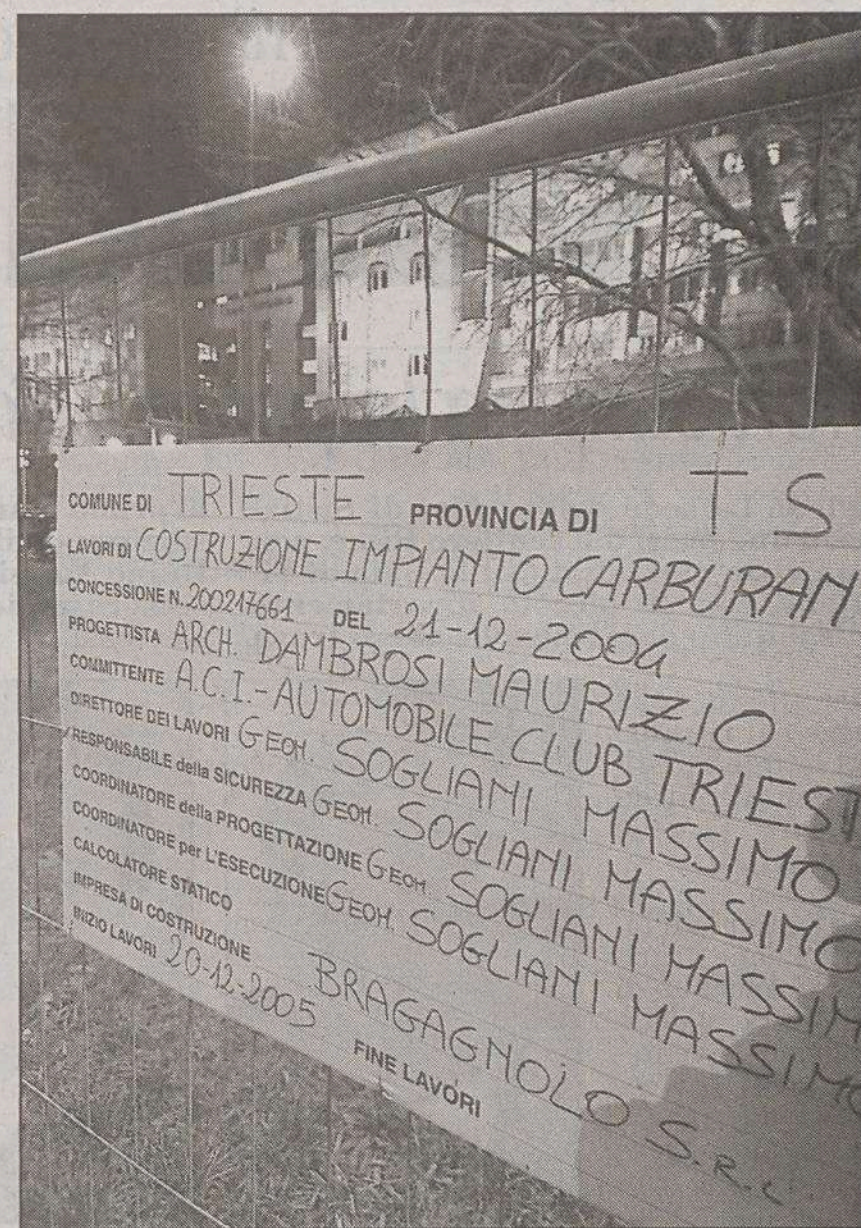 COMUNE DI TRIESTE PROVINCIA DI TS
LAVORI DI COSTRUZIONE IMPIANTO CARBURAN
CONCESSIONE N. 200217661 DEL 21-12-2004
PROGETTISTA ARCH. DAMBROSI MAURIZIO
COMMITTENTE A.C.I.-AUTOMOBILE CLUB TRIEST
DIRETTORE DEI LAVORI GEOM. SOGLIANI MASSIMO
RESPONSABILE della SICUREZZA GEOM. SOGLIANI MASSIMO
COORDINATORE della PROGETTAZIONE GEOM. SOGLIANI MASSIM
COORDINATORE per L'ESECUZIONE GEOM. SOGLIANI MASSIMO
CALCOLATORE STATICO
IMPRESA DI COSTRUZIONE BRAGAGNOLO S.R.L
INIZIO LAVORI 20-12-2005 FINE LAVORI